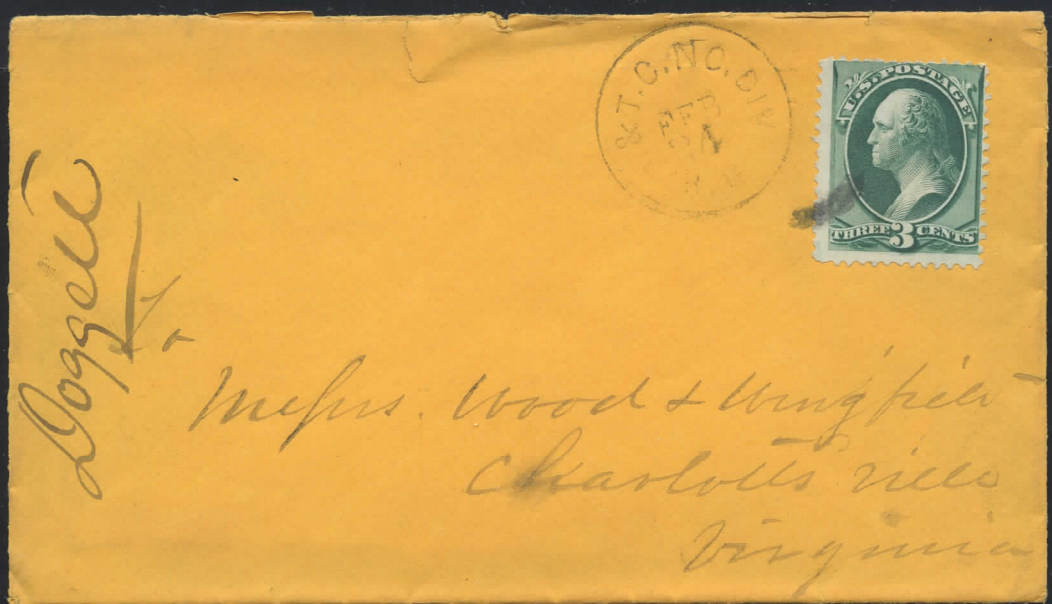 & T. C. NO. DIV
FEB
24
U.S. POSTAGE
THREE 3 CENTS
Doggett
To
Messrs. Wood & Wingfield
Charlottsville
Virginia